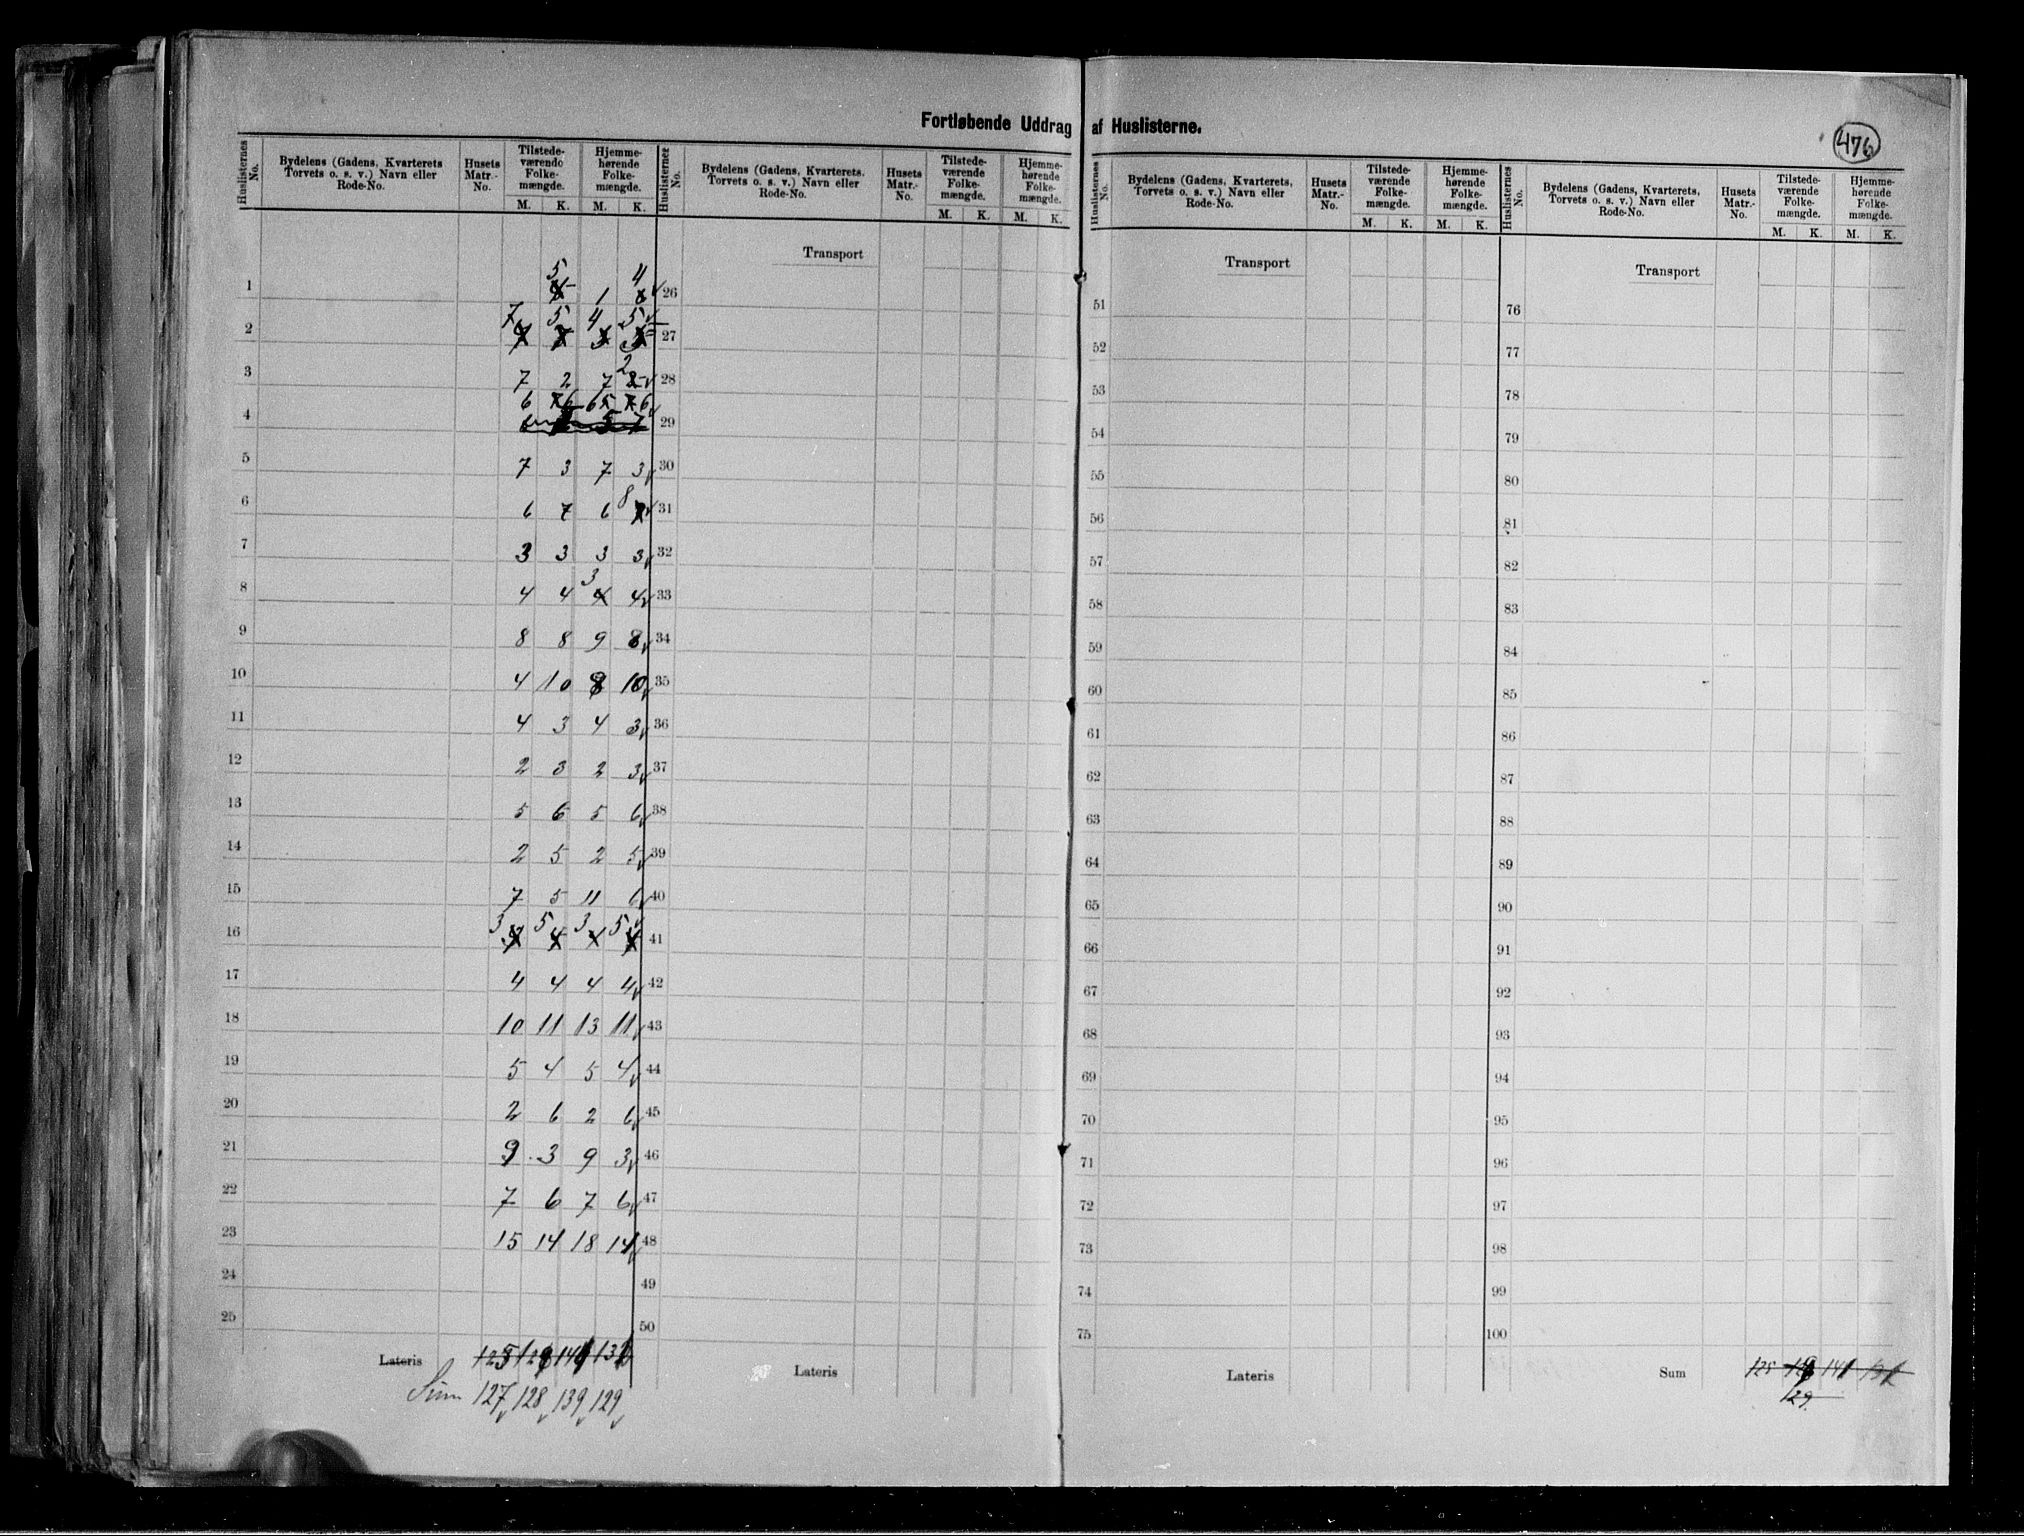 Fortløbende Uddrag af Huslisterne.
476
Huslisternes No. | Bydelens (Gadens, Kvarterets Torvets o. s. v.) Navn eller Rode-No. | Husets Matr.-No. | Tilstedeværende Folkemængde. M. K. | Hjemmehørende Folkemængde. M. K.
1 5 1 4
2 7 5 4 5
3 7 2 7 2
4 6 6 6 6
5 7 3 7 3
6 6 7 6 8
7 3 3 3 3
8 4 4 3 4
9 8 8 9 8
10 4 10 8 10
11 4 3 4 3
12 2 3 2 3
13 5 6 5 6
14 2 5 2 5
15 7 5 11 6
16 3 5 3 5
17 4 4 4 4
18 10 11 13 11
19 5 4 5 4
20 2 6 2 6
21 9 3 9 3
22 7 6 7 6
23 15 14 18 14
24
25
Lateris
Sum 127 128 139 129
Huslisternes No. | Bydelens (Gadens, Kvarterets. Torvets o. s. v.) Navn eller Rode-No. | Husets Matr.-No. | Tilstedeværende Folkemængde. M. K. | Hjemmehørende Folkemængde. M. K.
Transport
26
27
28
29
30
31
32
33
34
35
36
37
38
39
40
41
42
43
44
45
46
47
48
49
50
Lateris
Huslisternes No. | Bydelens (Gadens, Kvarterets, Torvets o. s. v.) Navn eller Rode-No. | Husets Matr.-No. | Tilstedeværende Folkemængde. M. K. | Hjemmehørende Folkemængde. M. K.
Transport
51
52
53
54
55
56
57
58
59
60
61
62
63
64
65
66
67
68
69
70
71
72
73
74
75
Lateris
Huslisternes No. | Bydelens (Gadens, Kvarterets, Torvets o. s. v.) Navn eller Rode-No. | Husets Matr.-No. | Tilstedeværende Folkemængde. M. K. | Hjemmehørende Folkemængde. M. K.
Transport
76
77
78
79
80
81
82
83
84
85
86
87
88
89
90
91
92
93
94
95
96
97
98
99
100
Sum 125
129